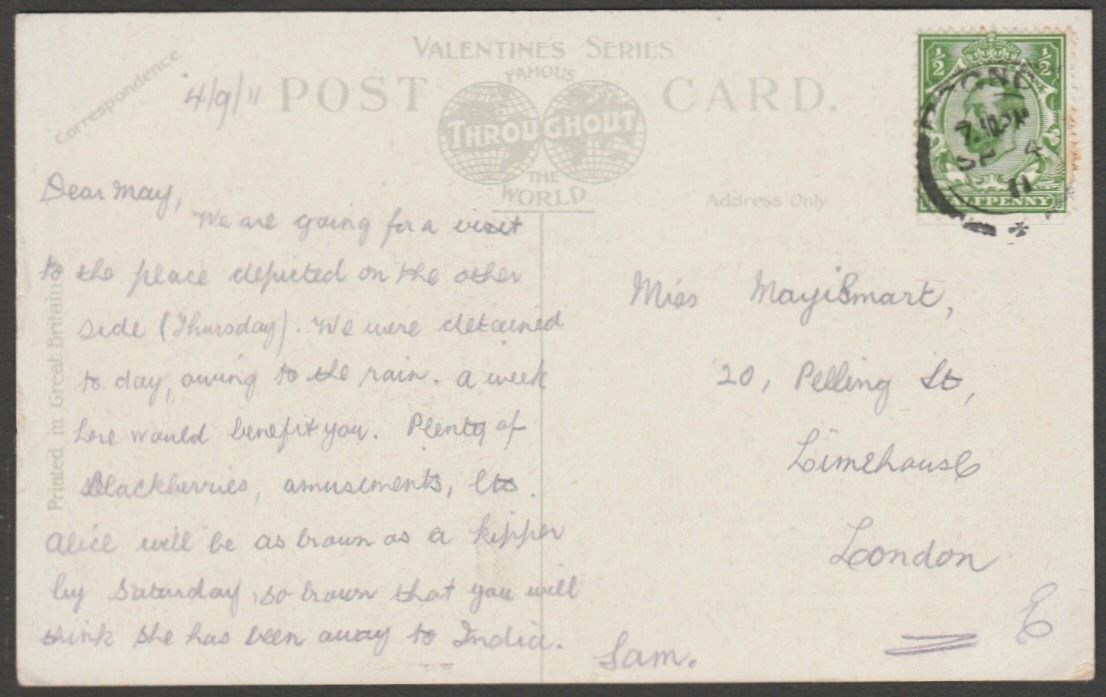 VALENTINE'S SERIES
FAMOUS
THROUGHOUT
THE
WORLD
POST CARD.
Correspondence
4/9/11
Address Only
Printed in Great Britain
½ ½
7.40 PM
SP 4
11
HALFPENNY
Dear May,
We are going for a visit
to the place depicted on the other
side (Thursday). We were detained
to day, owing to the rain. A week
here would benefit you. Plenty of
Blackberries, amusements, etc.
Alice will be as brown as a kipper
by Saturday, so brown that you will
think she has been away to India.
Sam.
Miss May Smart,
20, Pelling St,
Limehouse
London
E